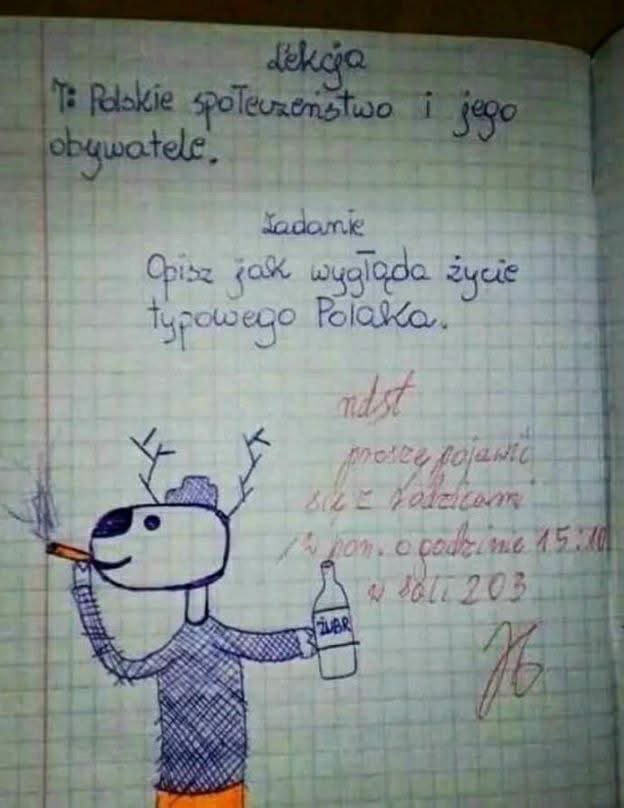 Lekcja
T: Polskie społeczeństwo i jego
obywatele.
Zadanie
Opisz jak wygląda życie
typowego Polaka.
ndst
proszę pojawić
się z rodzicami
w pon. o godzinie 15:10
w sali 203
ŻUBR